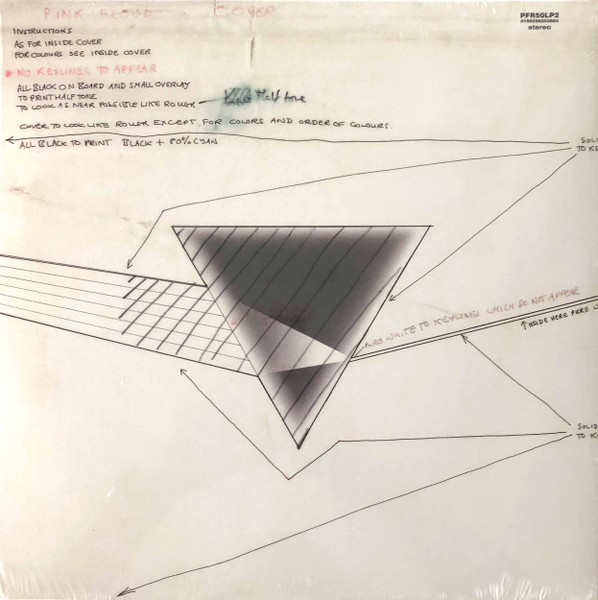 PINK FLOYD COVER
PFR50LP2
stereo
INSTRUCTIONS
AS FOR INSIDE COVER
FOR COLOURS SEE INSIDE COVER
* NO KEYLINES TO APPEAR
ALL BLACK ON BOARD AND SMALL OVERLAY
TO PRINT HALF TONE
TO LOOK AS NEAR POSSIBLE LIKE ROUGH
Half Tone
COVER TO LOOK LIKE ROUGH EXCEPT, FOR COLORS AND ORDER OF COLOURS.
ALL BLACK TO PRINT BLACK + 80% CYAN
SOLI
TO KE
WHITE TO KEYLINES WHICH DO NOT APPEAR
INSIDE HERE PURE
SOLID
TO K